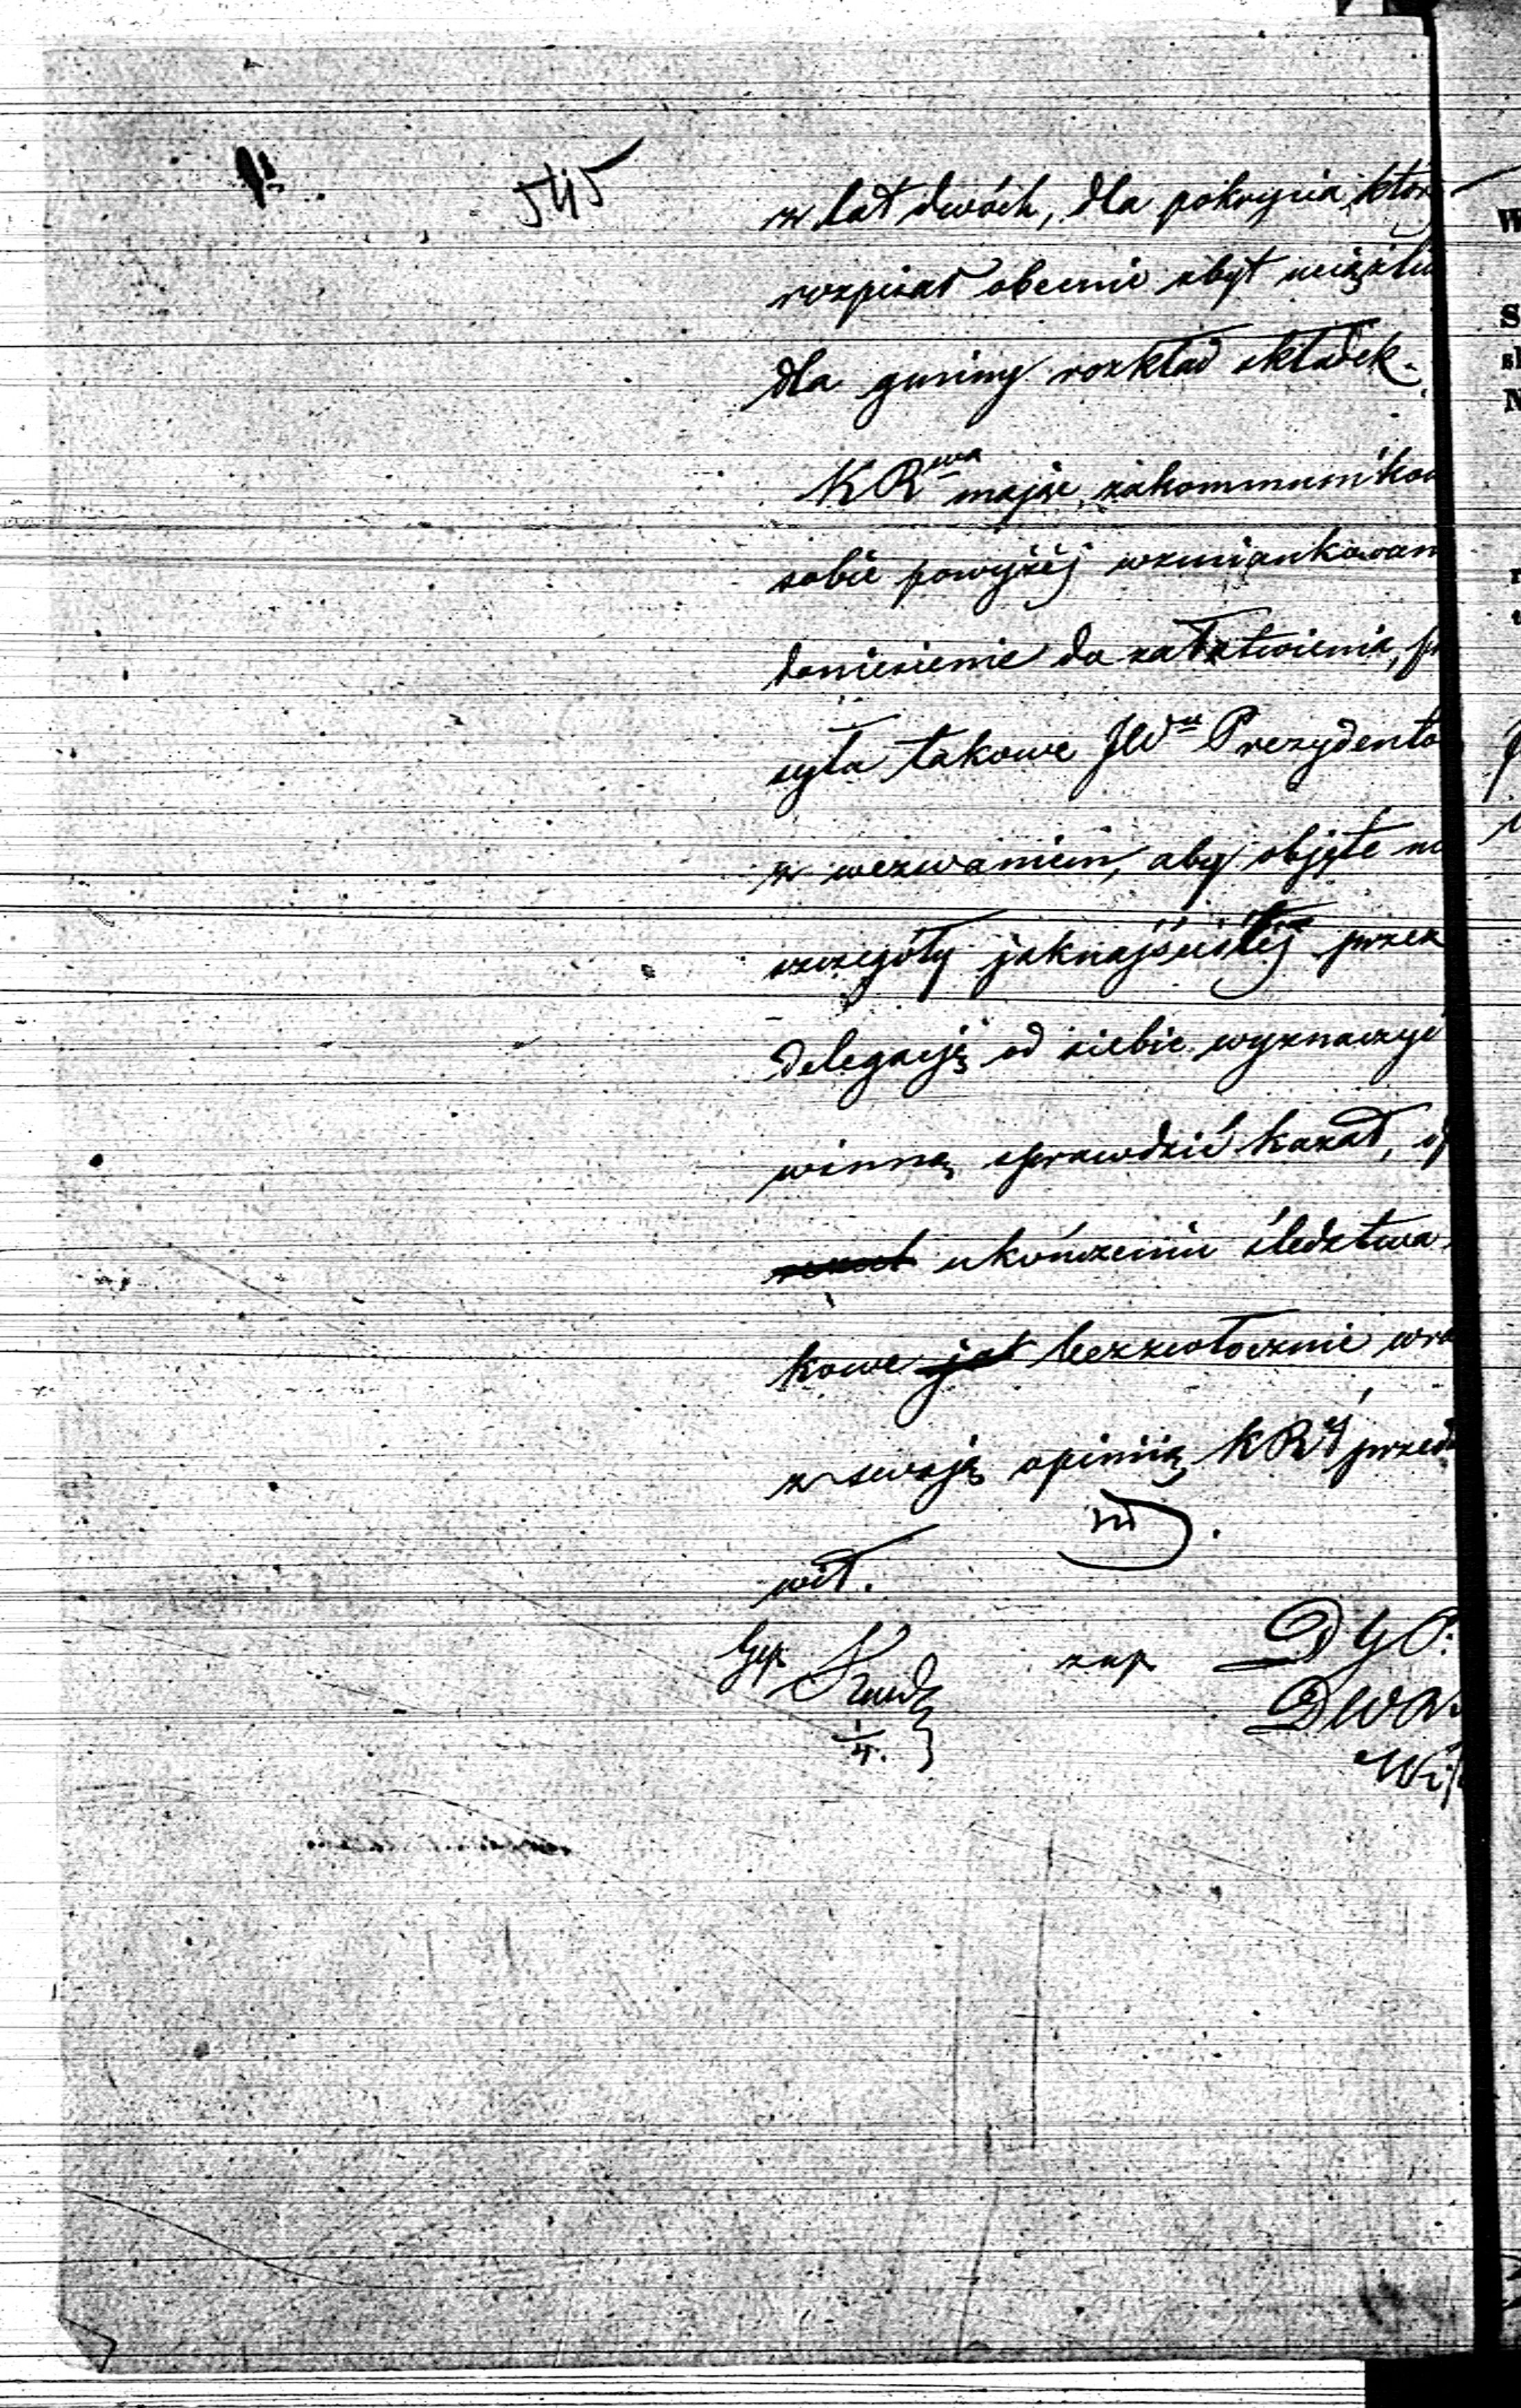 545
z lat dwóch, dla pokrycia któr
rozpisał obecnie zbyt uciążliw
dla gminy rozkład składek.
KRwa mając zakommuniko
sobie powyżéj wzmiankowan
doniesienie do załatwienia, p
syła takowe JWu Prezydento
z wezwaniem, aby objęte
szczegóły jaknajściśléj przez
delegacyą od siebie wyznaczyć
winną sprawdzić kazał,
ukończeniu śledztwa
kowe bezzwłocznie
z swoją opinią KRy przed
wił.
zup DGP.